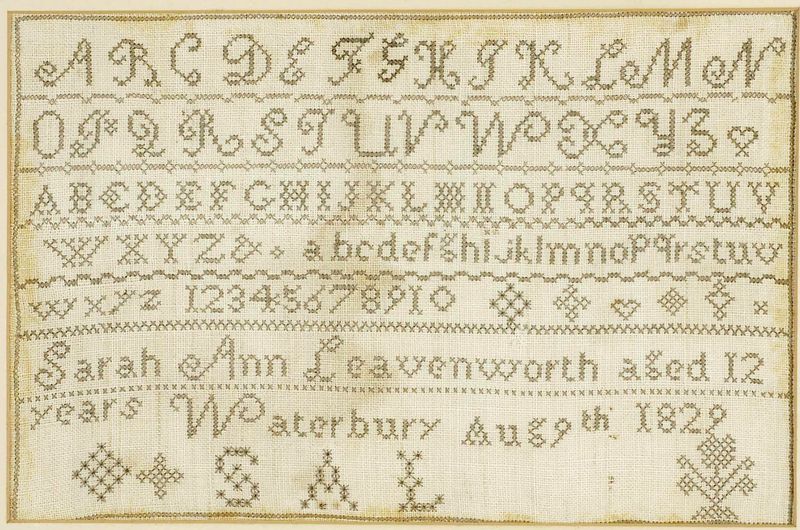 A B C D E F G H I K L M N
O P Q R S T U V W X Y Z
A B C D E F G H I J K L M N O P Q R S T U V
W X Y Z & a b c d e f g h i j k l m n o p q r s t u v
w x y z 1 2 3 4 5 6 7 8 9 1 0
Sarah Ann Leavenworth aged 12
years Waterbury Aug 9th 1829
S A L